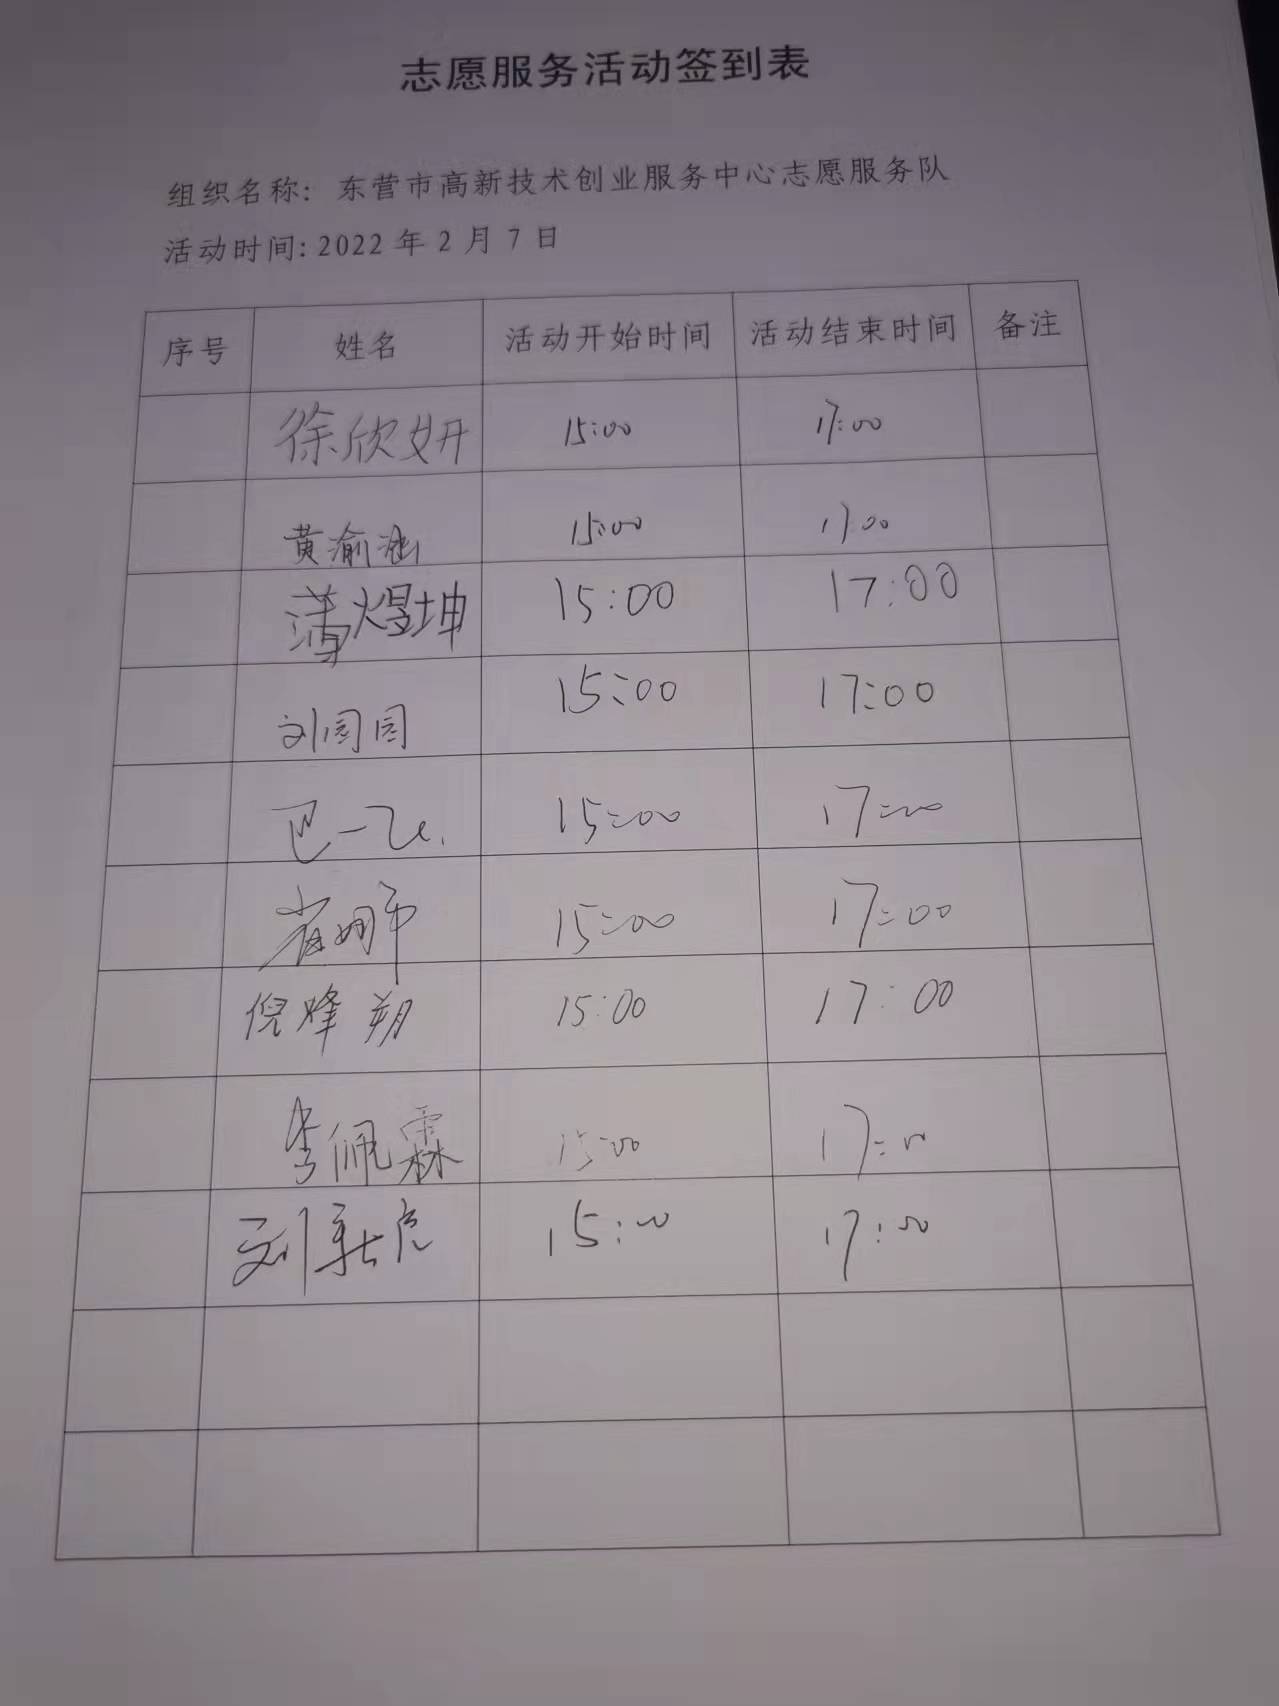 志愿服务活动签到表
组织名称: 东营市高新技术创业服务中心志愿服务队
活动时间: 2022 年 2 月 7 日
序号 姓名 活动开始时间 活动结束时间 备注
徐欣妍 15:00 17:00
黄渝涵 15:00 17:00
薄煜坤 15:00 17:00
刘园园 15:00 17:00
巴一飞 15:00 17:00
崔娜 15:00 17:00
倪烽朔 15:00 17:00
李佩霖 15:00 17:00
刘 15:00 17:00